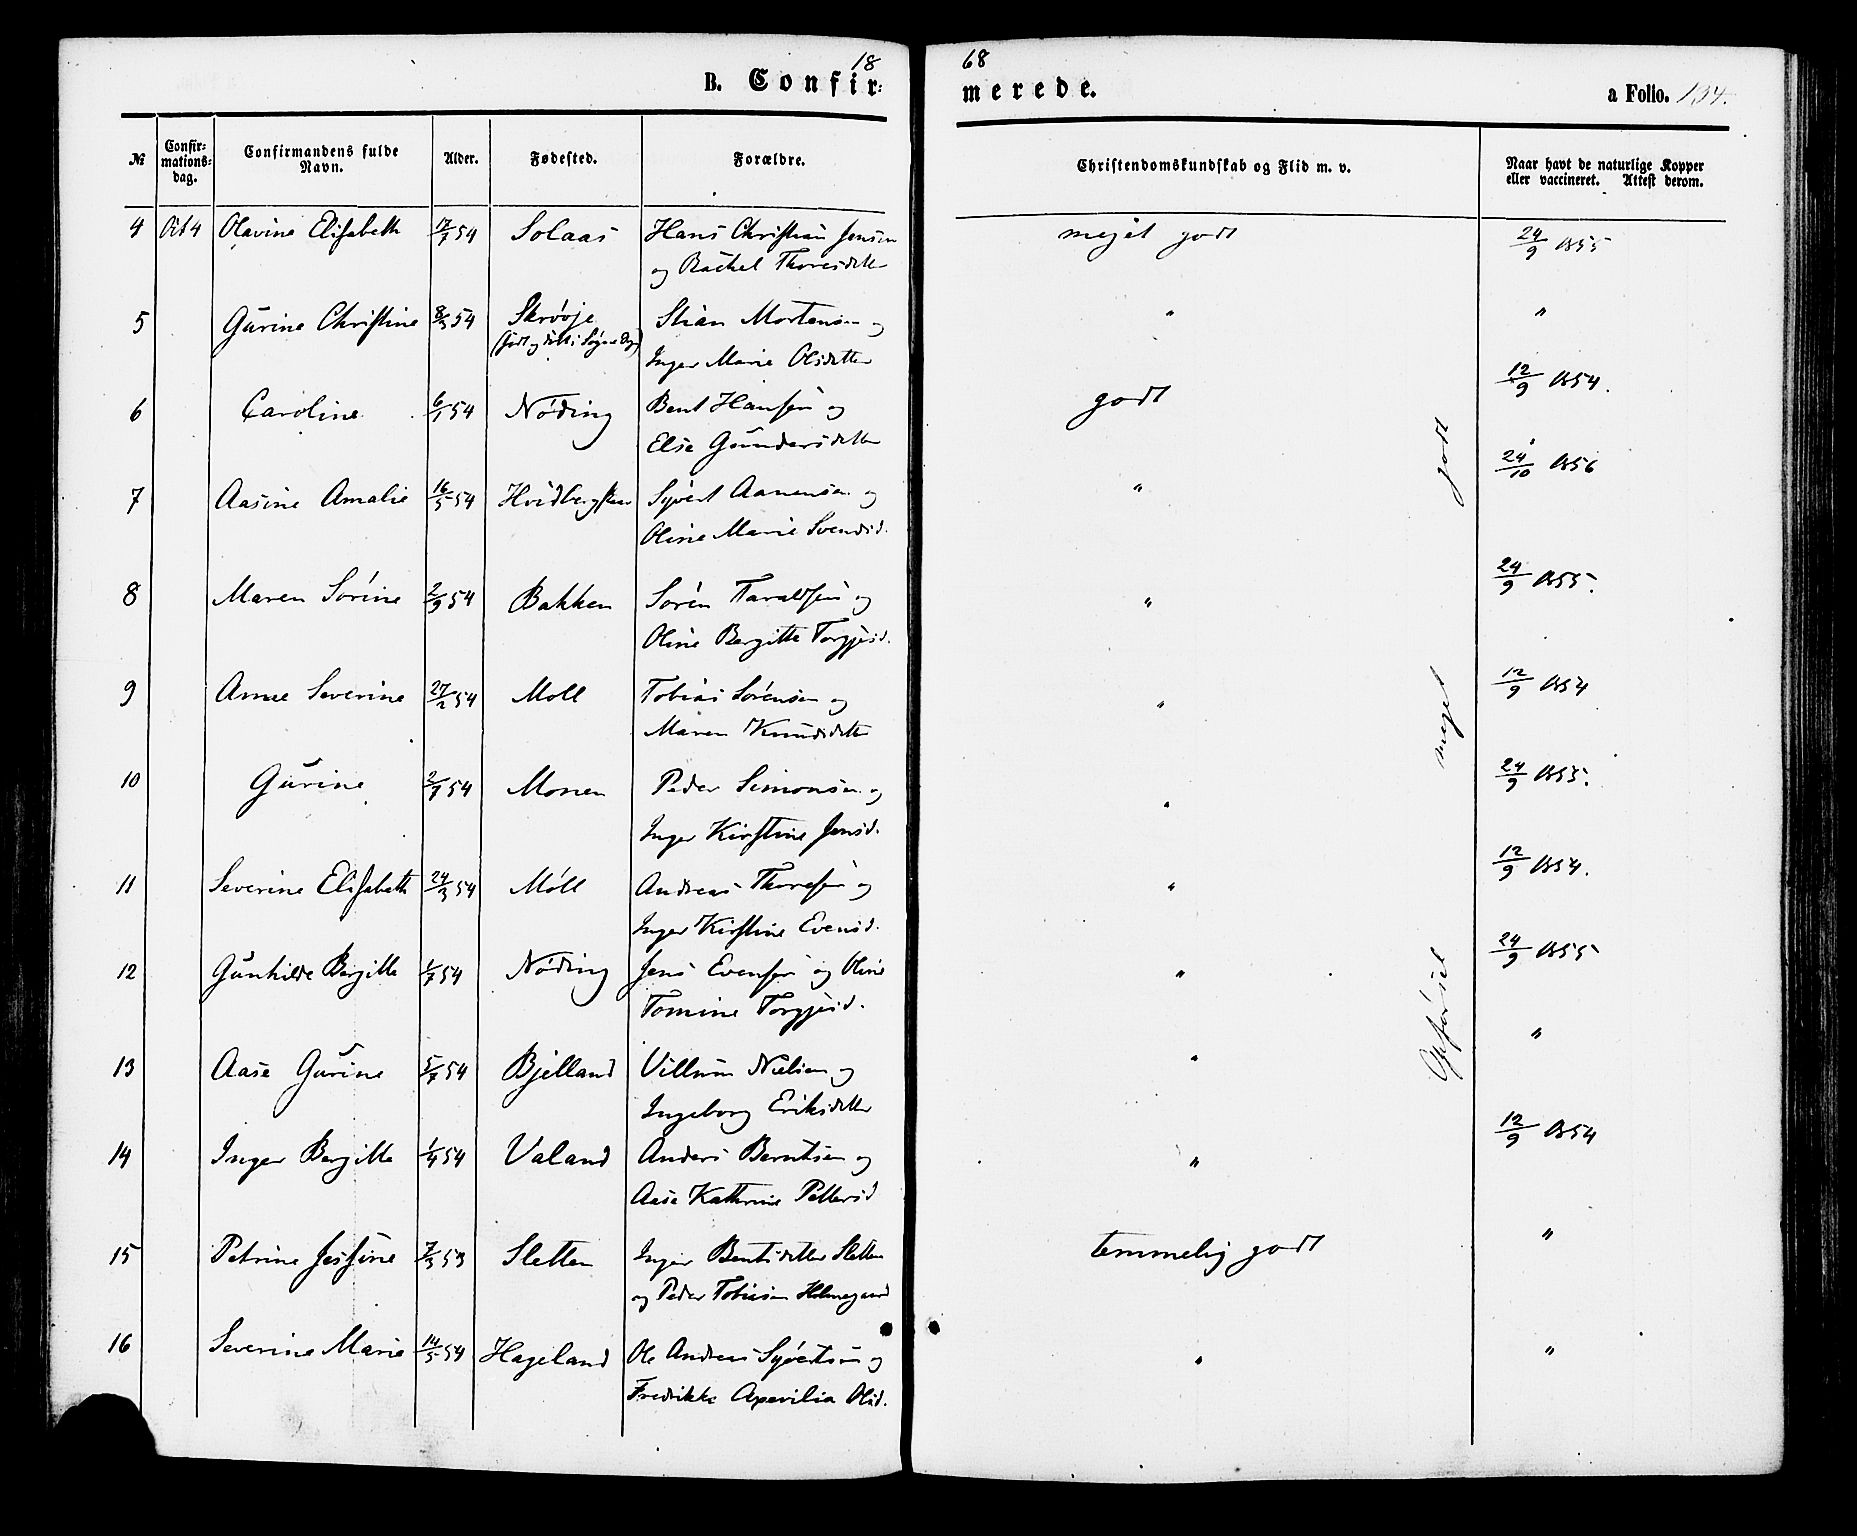 18 68
B. Confir: merede. a Folio. 134.
№ Confir-mations-dag. Confirmandens fulde Navn. Alder. Fødested. Forældre. Christendomskundskab og Flid m. v. Naar havt de naturlige Kopper eller vaccineret. Attest derom.
4 Oct 4 Olavine Elisabeth 12/7 54 Solaas Hans Christian Jensen meget godt 24/9 1855
og Rachel Thoresdatter
5 Gurine Christine 8/3 54 Skrøoje Stian Mortensen og " "
Inger Marie Olsdatter
6 Caroline 6/1 54 Nøding Bent Hansen og godt 12/9 1854.
Else Gundersdatter
7 Aasine Amalie 16/5 54 Hvidbergskær Syvert Aanensen og " 24/10 1856
Oline Marie Svendsd.
8 Maren Sørine 2/9 54 Bakken Sørén Taraldsen og " 24/9 1855.
Oline Bergitte Torgjusd.
9 Anne Severine 27/2 54 Moll Tobias Sørensen og " 12/9 1854
Maren Knudsdatter
10 Gurine 2/7 54 Monen Peder Simonsen og " 24/9 1855.
Inger Kirstine Jensd.
11 Severine Elisabeth 24/3 54 Móll Andreas Thoresen og " 12/9 1854.
Inger Kirstine Evensd.
12 Gunhilde Bergitte 1/7 54 Nøding Jens Evensen og Oline " 24/9 1855
Tomine Torgjusd.
13 Aase Gurine 5/7 54 Bjelland Villum Nielsen og " "
Ingeborg Eriksdatter
14 Inger Bergitte 1/4 54 Valand Anders Berntsen og " 12/9 1854
Aase Kathrine Pettersd
15 Petrine Josefine 7/3 53 Sletten Inger Bentsdatter Sletten temmelig godt "
og Peder Tobiasen Holmegaard
16 Severine Marie 14/5 54 Hageland Ole Andreas Syvertsen og " "
Fredrikke Axevilia Olsd.
Opførsel meget godt